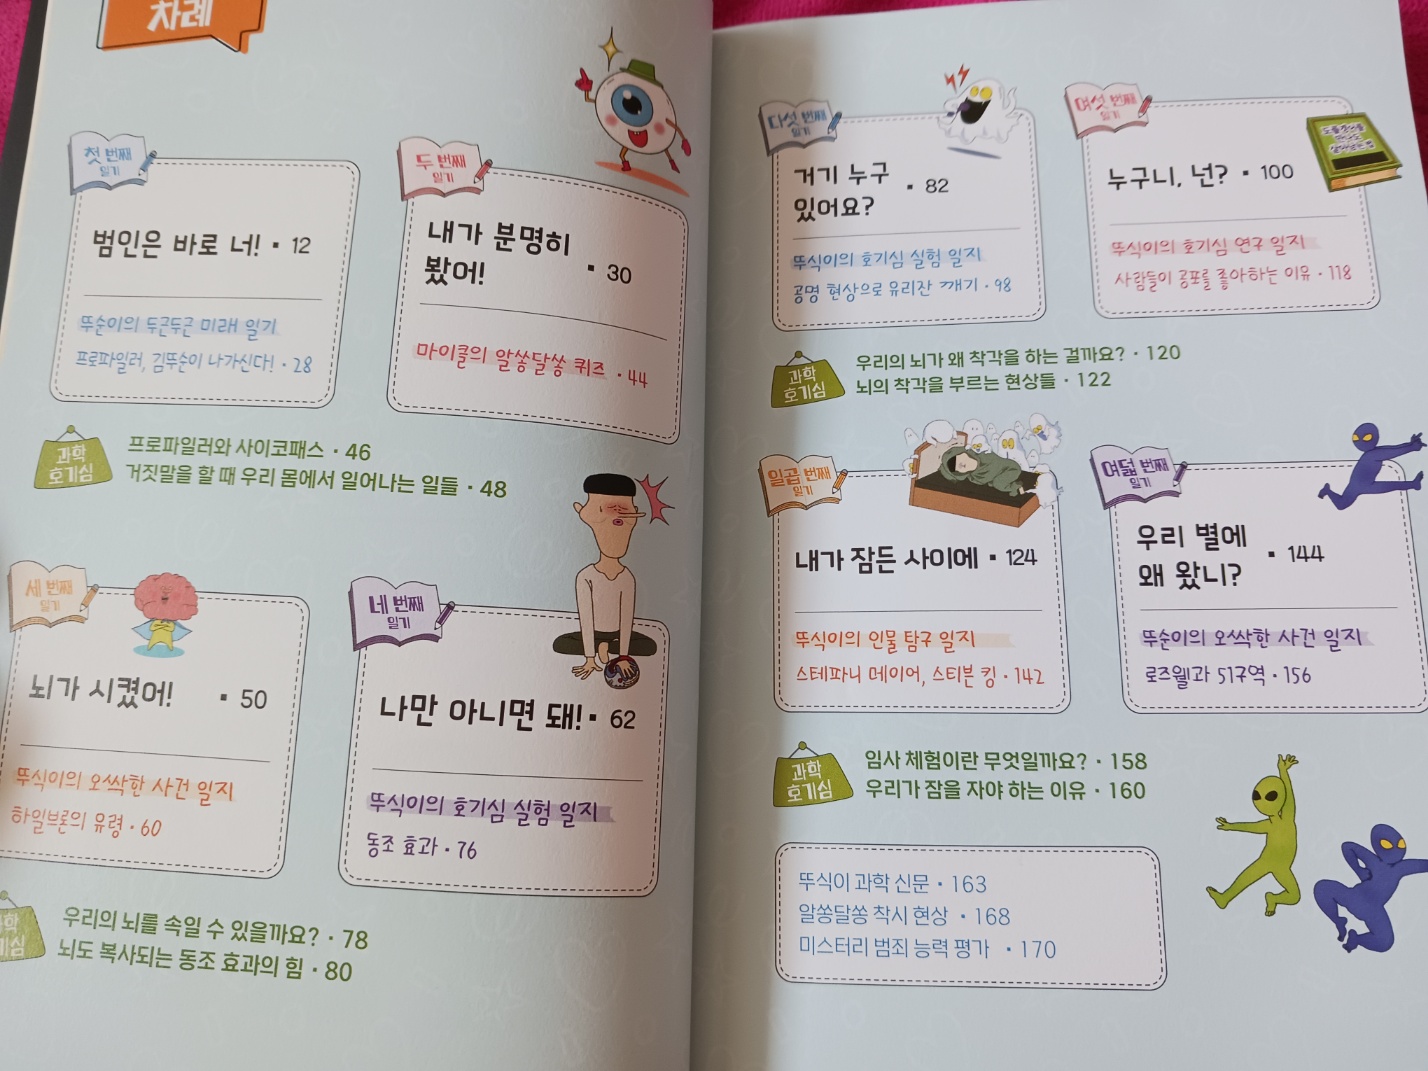 차례
첫 번째
일기
범인은 바로 너! ▪ 12
뚜순이의 두근두근 미래 일기
프로파일러, 김뚜순이 나가신다! · 28
두 번째
일기
내가 분명히
봤어! ▪ 30
마이클의 알쏭달쏭 퀴즈 · 44
과학
호기심
프로파일러와 사이코패스 · 46
거짓말을 할 때 우리 몸에서 일어나는 일들 · 48
세 번째
일기
뇌가 시켰어! ▪ 50
뚜식이의 오싹한 사건 일지
하일브론의 유령 · 60
네 번째
일기
나만 아니면 돼! ▪ 62
뚜식이의 호기심 실험 일지
동조 효과 · 76
과학
호기심
우리의 뇌를 속일 수 있을까요? · 78
뇌도 복사되는 동조 효과의 힘 · 80
다섯 번째
일기
거기 누구
있어요? ▪ 82
뚜식이의 호기심 실험 일지
공명 현상으로 유리잔 깨기 · 98
여섯 번째
일기
누구니, 넌? ▪ 100
뚜식이의 호기심 연구 일지
사람들이 공포를 좋아하는 이유 · 118
과학
호기심
우리의 뇌가 왜 착각을 하는 걸까요? · 120
뇌의 착각을 부르는 현상들 · 122
일곱 번째
일기
내가 잠든 사이에 ▪ 124
뚜식이의 인물 탐구 일지
스테파니 메이어, 스티븐 킹 · 142
여덟 번째
일기
우리 별에
왜 왔니? ▪ 144
뚜순이의 오싹한 사건 일지
로즈웰과 51구역 · 156
과학
호기심
임사 체험이란 무엇일까요? · 158
우리가 잠을 자야 하는 이유 · 160
뚜식이 과학 신문 · 163
알쏭달쏭 착시 현상 · 168
미스터리 범죄 능력 평가 · 170